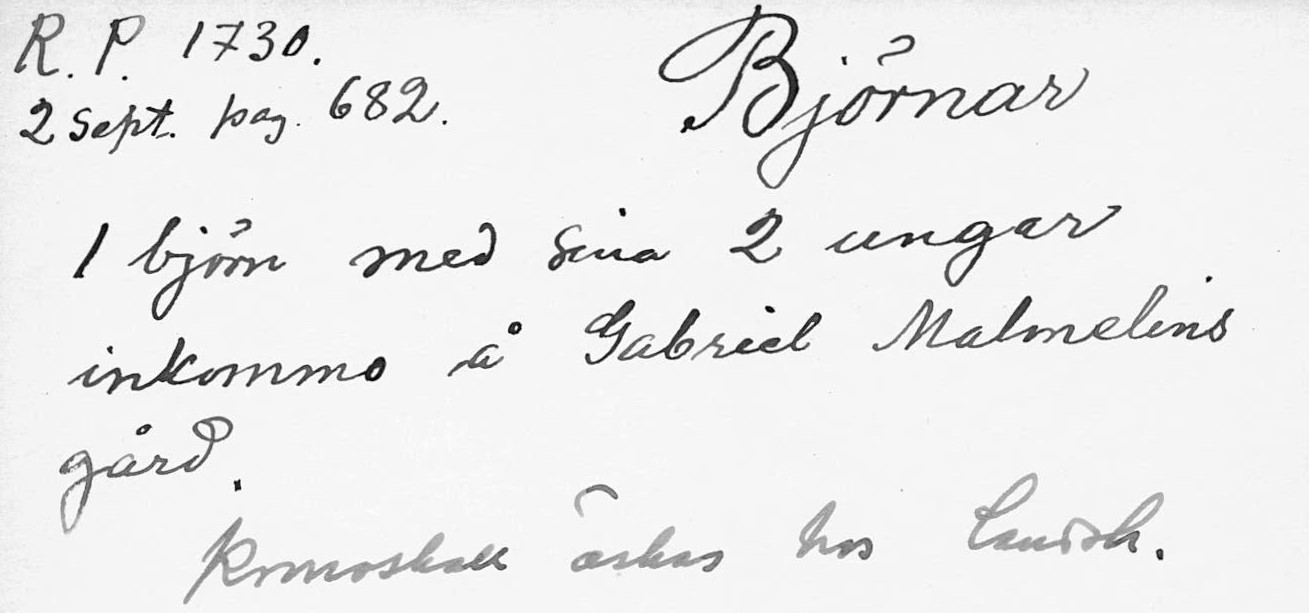 R. P. 1730.
2 Sept. pag. 682.
Björnar
1 björn med sina 2 ungar
inkommo å Gabriel Malmelins
gård.
äskas hos Landsh.